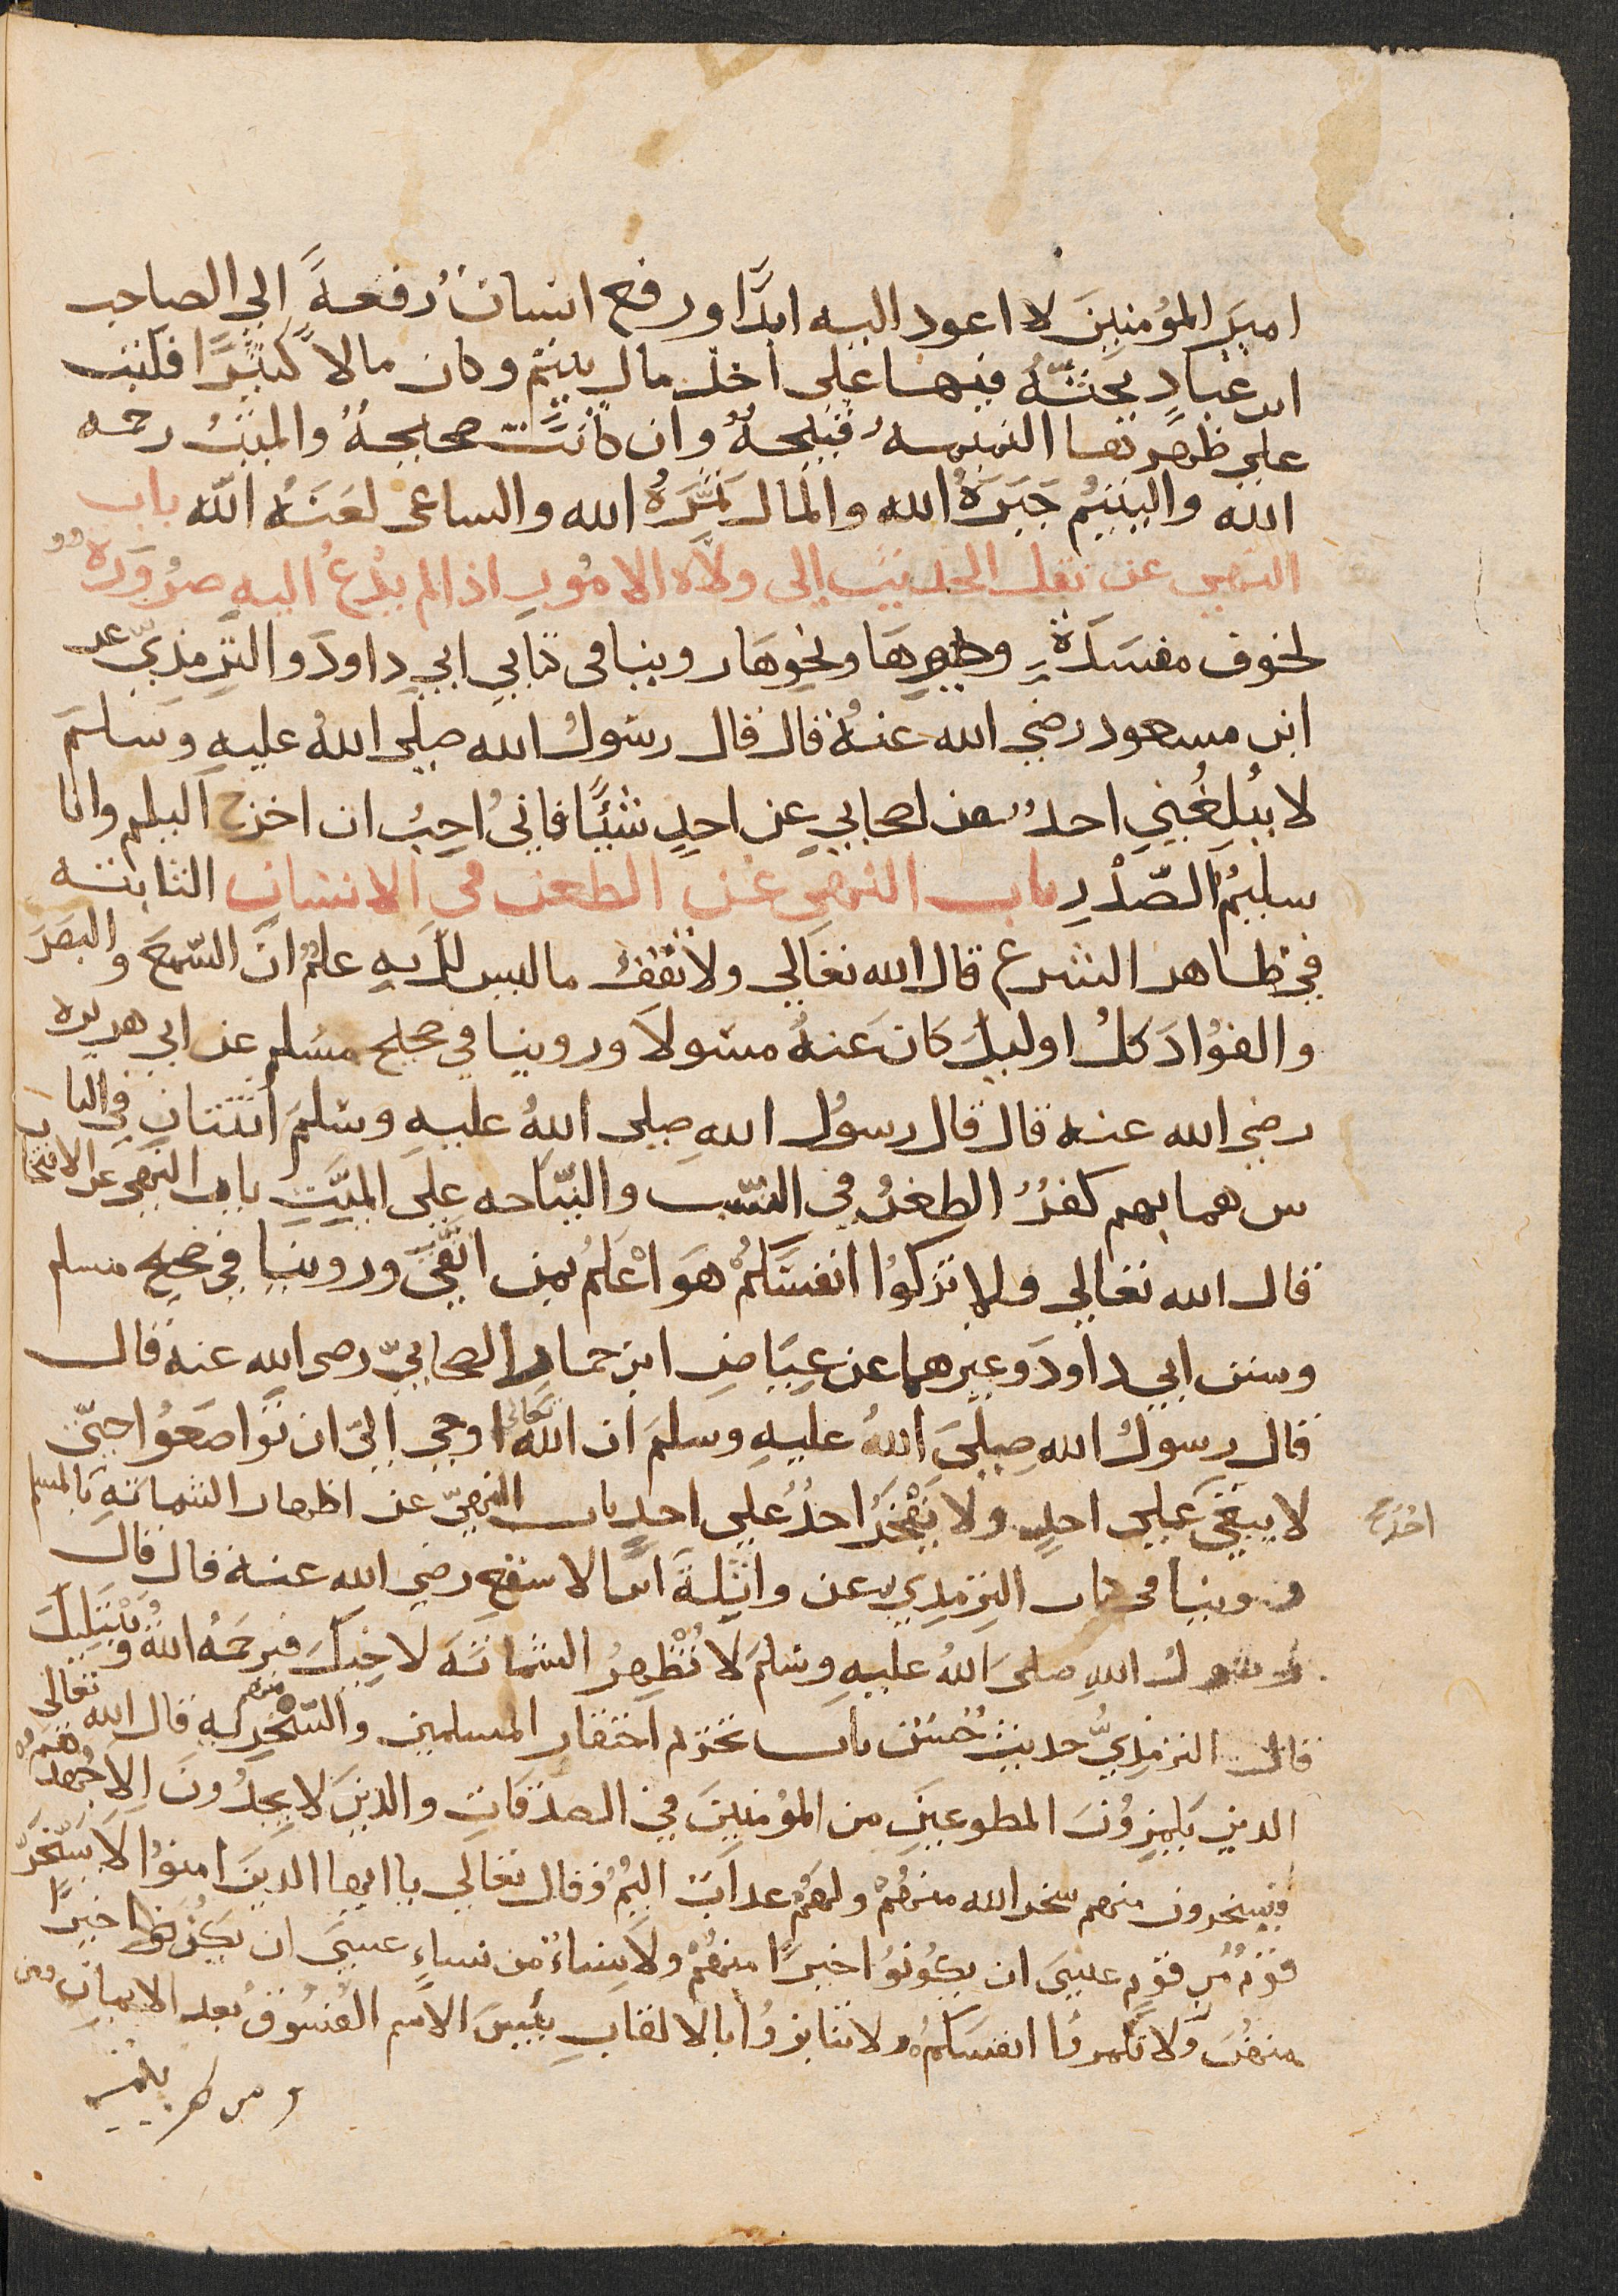 امير المؤمنين لا اعود اليه ابدًا ورفع انسان رُقعةً الى الصاحب
ابن عباد يحثّه فيها على اخذ مال يتيم وكان مالاً كثيرًا فكتب
على ظهرها النميمه قبيحة وان كانت صحيحة والميت رحمه
الله واليتيم جَبَرَهُ الله والمال ثَمَّرَهُ الله والساعى لعَنَهُ الله باب
النهي عن نقل الحديث إلى ولاة الامُور اذا لم يدعُ اليه ضرُورَة
لخوف مفسَدَة وغيرِهَا ونحوِهَا روينا فى كتابي ابي داود والترمذيّ عن
ابن مسعود رضي الله عنهُ قال قال رسُولُ الله صلى اللهُ عليهِ وسَلَّمَ
لا يُبلغُني احدٌ من اصحابي عن احدٍ شيئًا فانى اُحِبُ ان اخرج اليكم وانا
سليمُ الصّدْرِ باب النهى عن الطعن في الانساب الثابته
في ظاهر الشرع قال الله تعَالي ولا تقفُ ما ليس لكَ بِهِ علمٌ انَّ السّمعَ والبصَرَ
والفؤادَ كلُ اوليكَ كانَ عَنهُ مسُولاَ وروينا في صحيح مسُلم عن ابي هريره
رضي الله عنه قال قال رسولُ اللهِ صلى اللهُ عليهِ وسَلمَ اثنتانِ في النا
س هما بهم كفرٌ الطعنُ في النسَب والنيّاحه عَلَى الميِّتِ باب النهى عن الافتخار
قال الله تعالي ولا تزكوُا انفسَكُمْ هوَ اعْلمُ بمن اتقَى وروينا في صحيح مسلم
وسنن ابي داودَ وغيرهما عن عيَاضِ ابن حمار الصحابيّ رضى الله عنه قال
قال رسول اللهِ صلىَ اللهُ عليهِ وسلمَ ان اللهَ تعالى اوحي اليّ ان تواضعُوا حتىّ
لا يبغي عَلي احدٍ ولا يَفْخَرُ احدُ على احدٍ باب النهيّ عن اظهار الشماتةِ بالمسلم
احُدٌ
روينا فى كتاب الترمذي عن واثِلةَ ابن الاسقعِ رضي الله عنهُ قال قال
رسُولُ اللهِ صلىَ اللهُ عليهِ وسَلمَ لاَ تُظْهِرُ الشماتَةَ لاخِيكَ فيرحمَهُ اللهُ ويَبْتَلِيكَ
قال الترمذيُّ حديثٌ حُسَنٌ باب تحريم احتقار المسلمين والسّخريه منهم قال الله تعالى
الذين يَلمِزوُنَ المطوعينَ من المؤمنينَ في الصدقاتِ والذينَ لا يجدُونَ الاَ جُهدهُم
فيسخرون منهم سخر الله منهُمْ ولهُمْ عذابٌ اليمٌ وقال تعالي يا ايها الذينَ امنوُا لاَ يسْخَرْ
قومٌ مُن قومٍ عسىَ ان يكُونوُا خيرًا منهُمْ ولاَ نِساءٌ من نساءٍ عسىَ ان يكُنَّ خيرًا
منهُنَ ولا تلمزوُا انفسَكُمْ ولا تنابزوُا بالالقابِ بئيسَ الاسم الفُسُوقُ بعد الايمانِ ومن